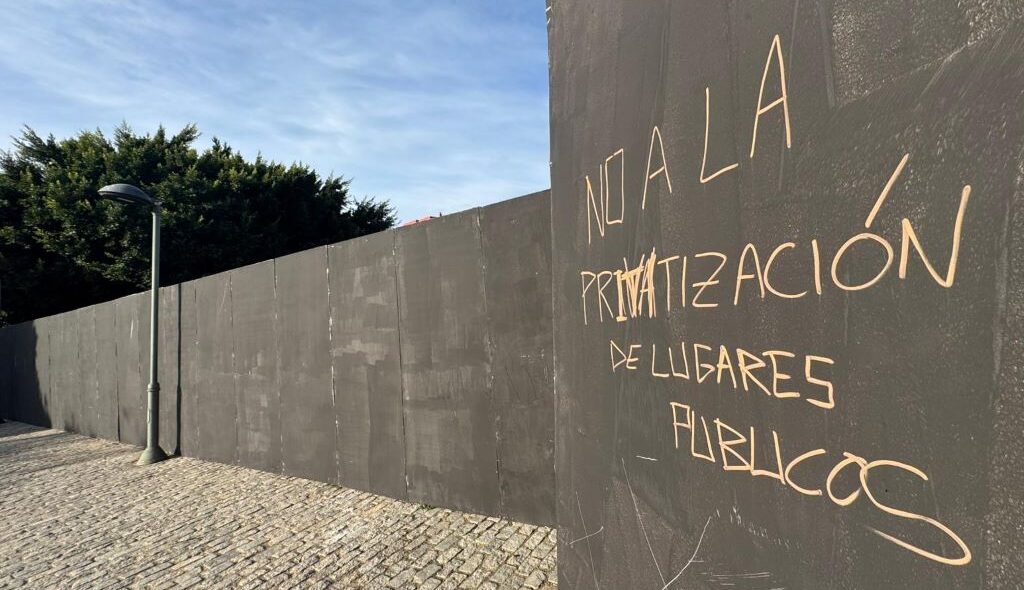 NO A LA
PRIVATIZACIÓN
DE LUGARES
PUBLICOS